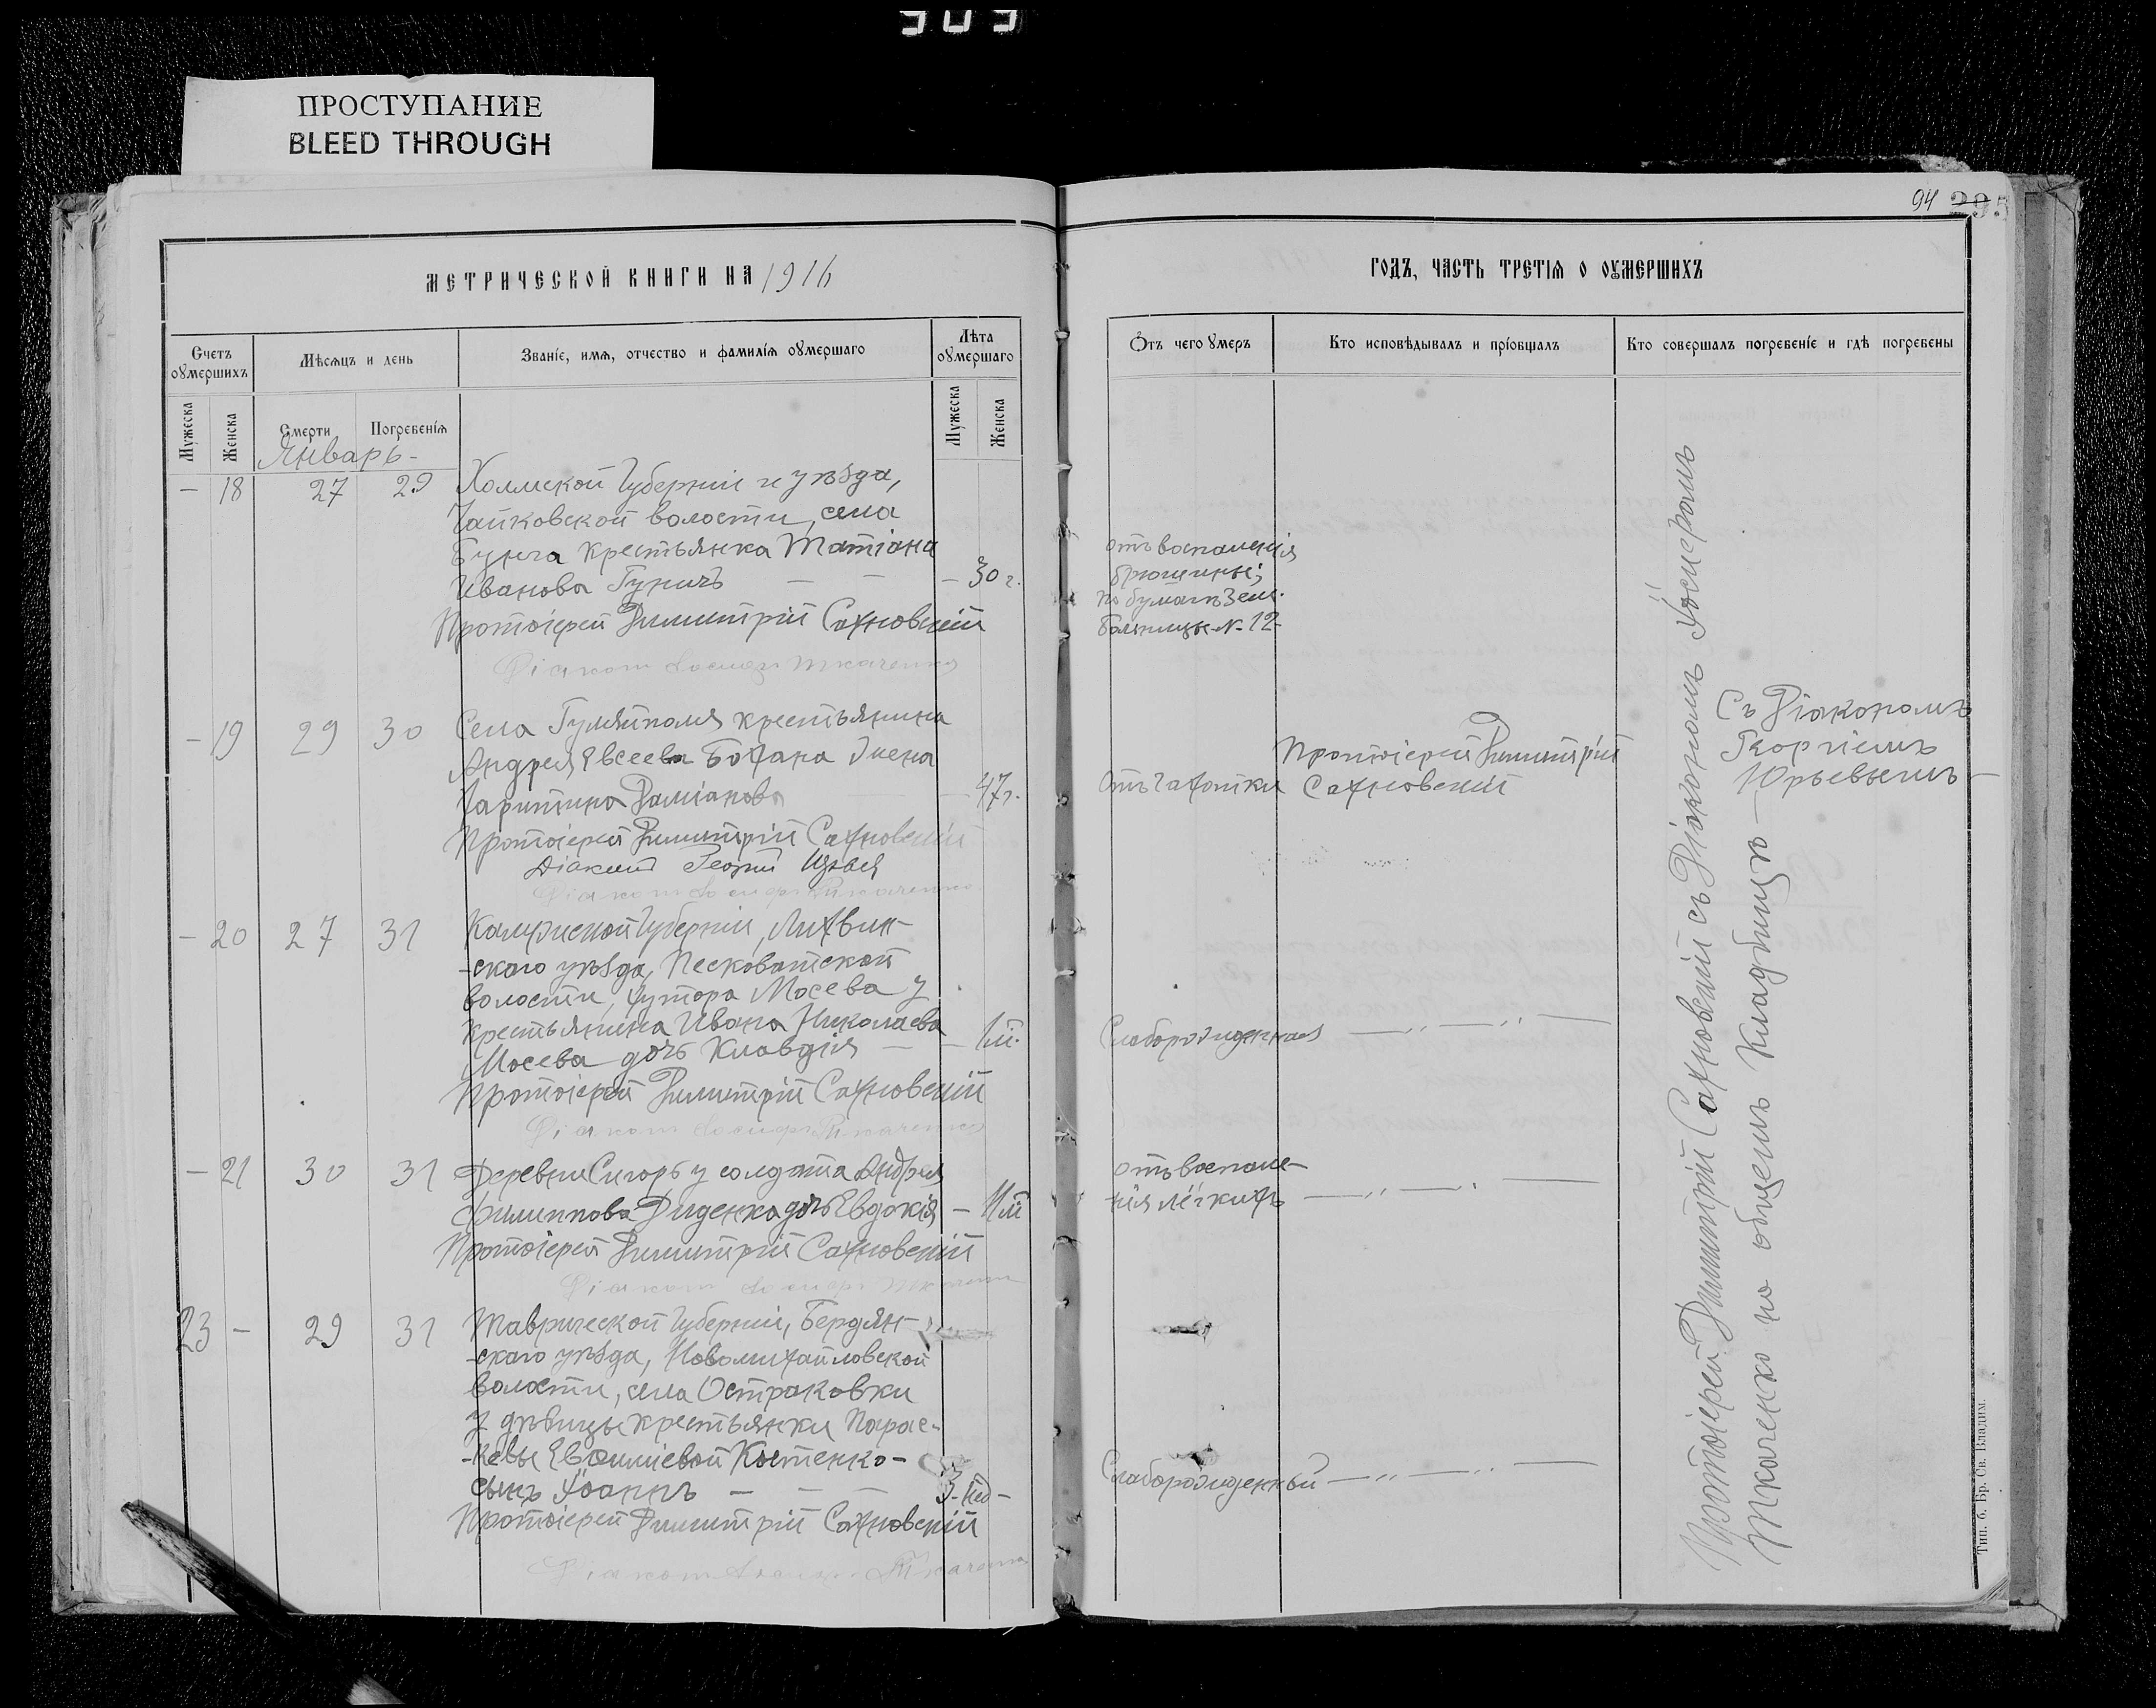 ПРОСТУПАНИЕ
BLEED THROUGH
94 295
МЕТРИЧЕСКОЙ КНИГИ НА 1916
Счетъ оумершихъ
Мѣсяцъ и день
Званіе, имя, отчество и фамилія оумершаго
Лѣта оумершаго
Мужеска
Женска
Смерти
Погребенія
Мужеска
Женска
Январь-
— 18 27 29 Холмской Губерніи и уѣзда,
волости, села
Бунча крестьянка Татіана
Иванова Гуничъ — — — 30 г.
Протоіерей Димитрій Сахновскій
Діаконъ Іосифъ Ткаченко
— 19 29 30 Села Гуляйполя крестьянина
Андрея Евсеева Бохана жена
Харитина Даміанова — 47 г.
Протоіерей Димитрій Сахновскій
Діаконъ Георгій Юрьевъ
Діаконъ Іосифъ Ткаченко
— 20 27 31 Калужской Губерніи, Лихвин-
-скаго уѣзда, Песковатской
волости, хутора Мосева у
крестьянина Ивана Николаева
Мосева дочь Клавдія — — 1 м.
Протоіерей Димитрій Сахновскій
Діаконъ Іосифъ Ткаченко
— 21 30 31 Деревни у солдата Андрея
Филиппова Диденка дочь Евдокія —
Протоіерей Димитрій Сахновскій
Діаконъ Іосифъ Ткаченко
23 — 29 31 Таврической Губерніи, Бердян-
-скаго уѣзда, Новомихайловской
волости, села Остраковки
у дѣвицы крестьянки Парас-
-кевы Евфиміевой Костенко-
сынъ Іоаннъ — — — 3 нед —
Протоіерей Димитрій Сахновскій
Діаконъ Іосифъ Ткаченко
ГОДЪ, ЧАСТЬ ТРЕТІЯ О ОУМЕРШИХЪ
Отъ чего умеръ
Кто исповѣдывалъ и пріобщалъ
Кто совершалъ погребеніе и гдѣ погребены
отъ воспаленія
брюшины;
по бумагѣ Зем.
Больницы № 12
Отъ чахотки
Протоіерей Димитрій
Сахновскій
Съ Діакономъ
Георгіемъ
Юрьевымъ —
Слаборожденная —„—„—
отъ воспале-
нія лёгкихъ —„—„—
Слаборожденный —„—„—
Протоіерей Димитрій Сахновскій съ Діакономъ Іосифомъ
Ткаченко на общемъ Кладбищѣ —
Тип. б. Бр. Св. Владим.